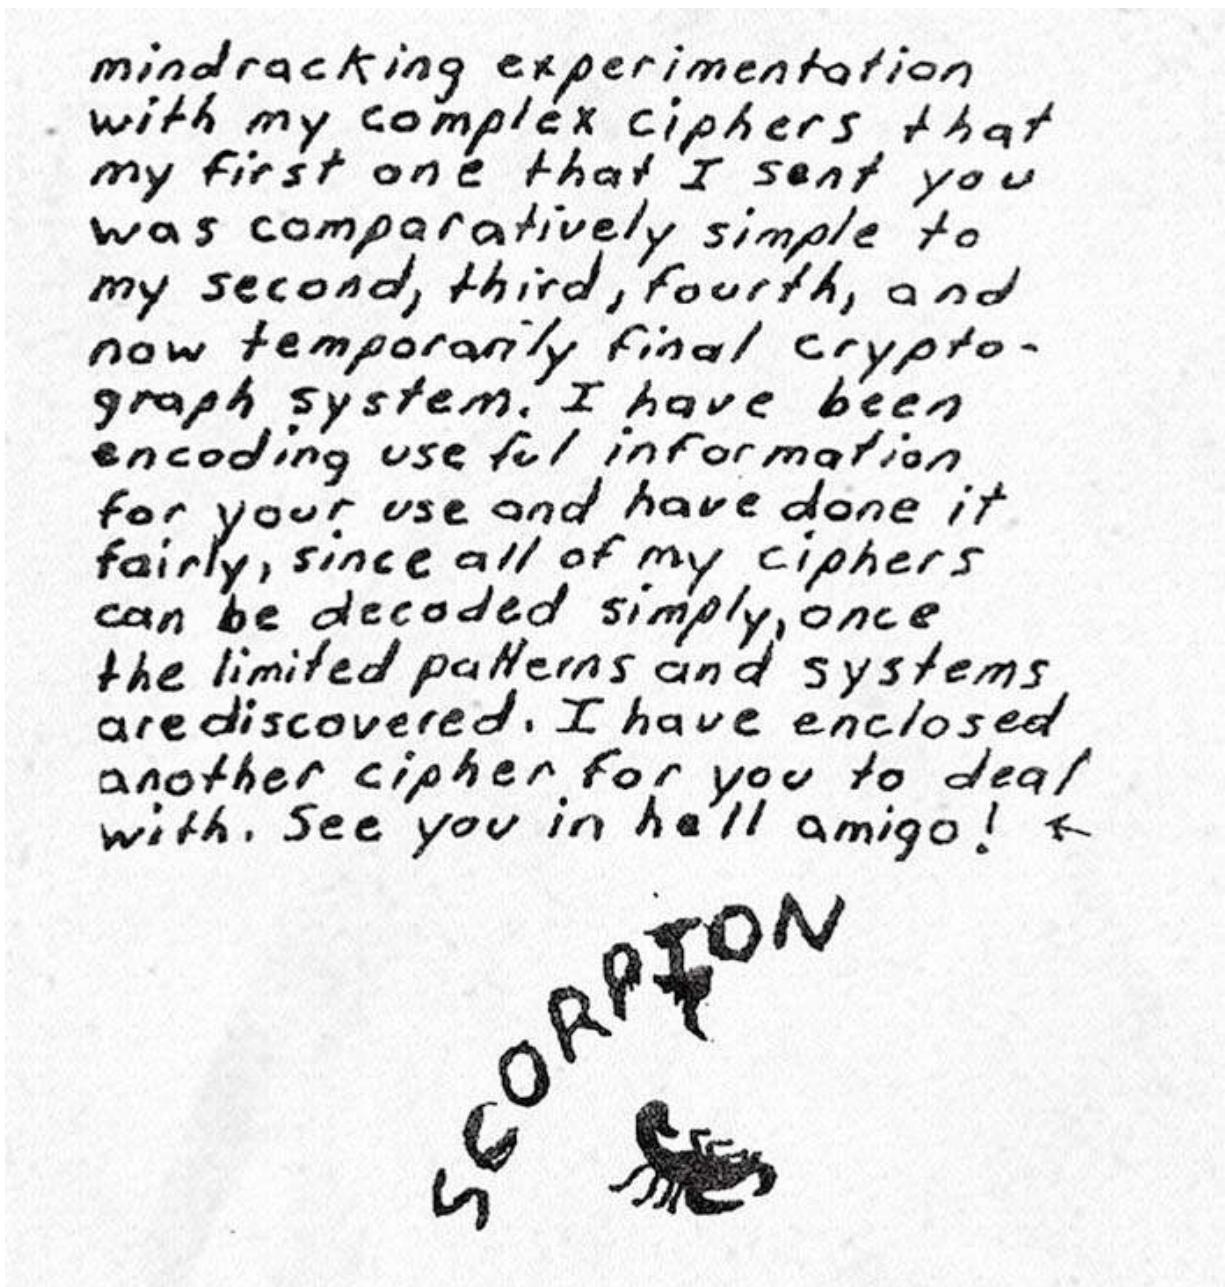 mindracking experimentation
with my complex ciphers that
my first one that I sent you
was comparatively simple to
my second, third, fourth, and
now temporarily final crypto-
graph system. I have been
encoding useful information
for your use and have done it
fairly, since all of my ciphers
can be decoded simply, once
the limited patterns and systems
are discovered. I have enclosed
another cipher for you to deal
with. See you in hell amigo!
SCORPION